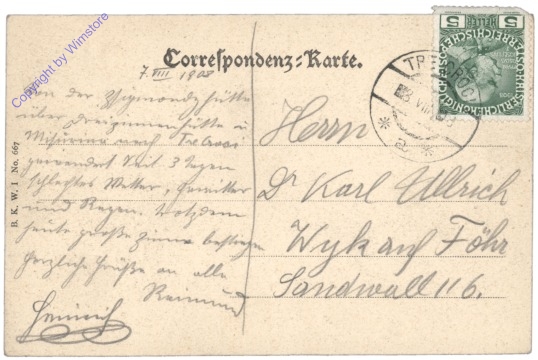 Correspondenz-Karte.
7. VIII 1908
Von der Zsigmondyhütte
über Dreizinnenhütte u
Misurina nach Tre Croci
gewandert. Seit 3 Tagen
schlechtes Wetter, Gewitter
und Regen. Trotzdem
heute große Zinne bestiegen
Herzliche Grüße an alle
Reimund
Heinrich
Herrn
Dr Karl Ullrich
Wyk auf Föhr
Sandwall 116.
B. K. W. I No. 667
5 HELLER 5
TRE CROCI
Copyright by Wimstore